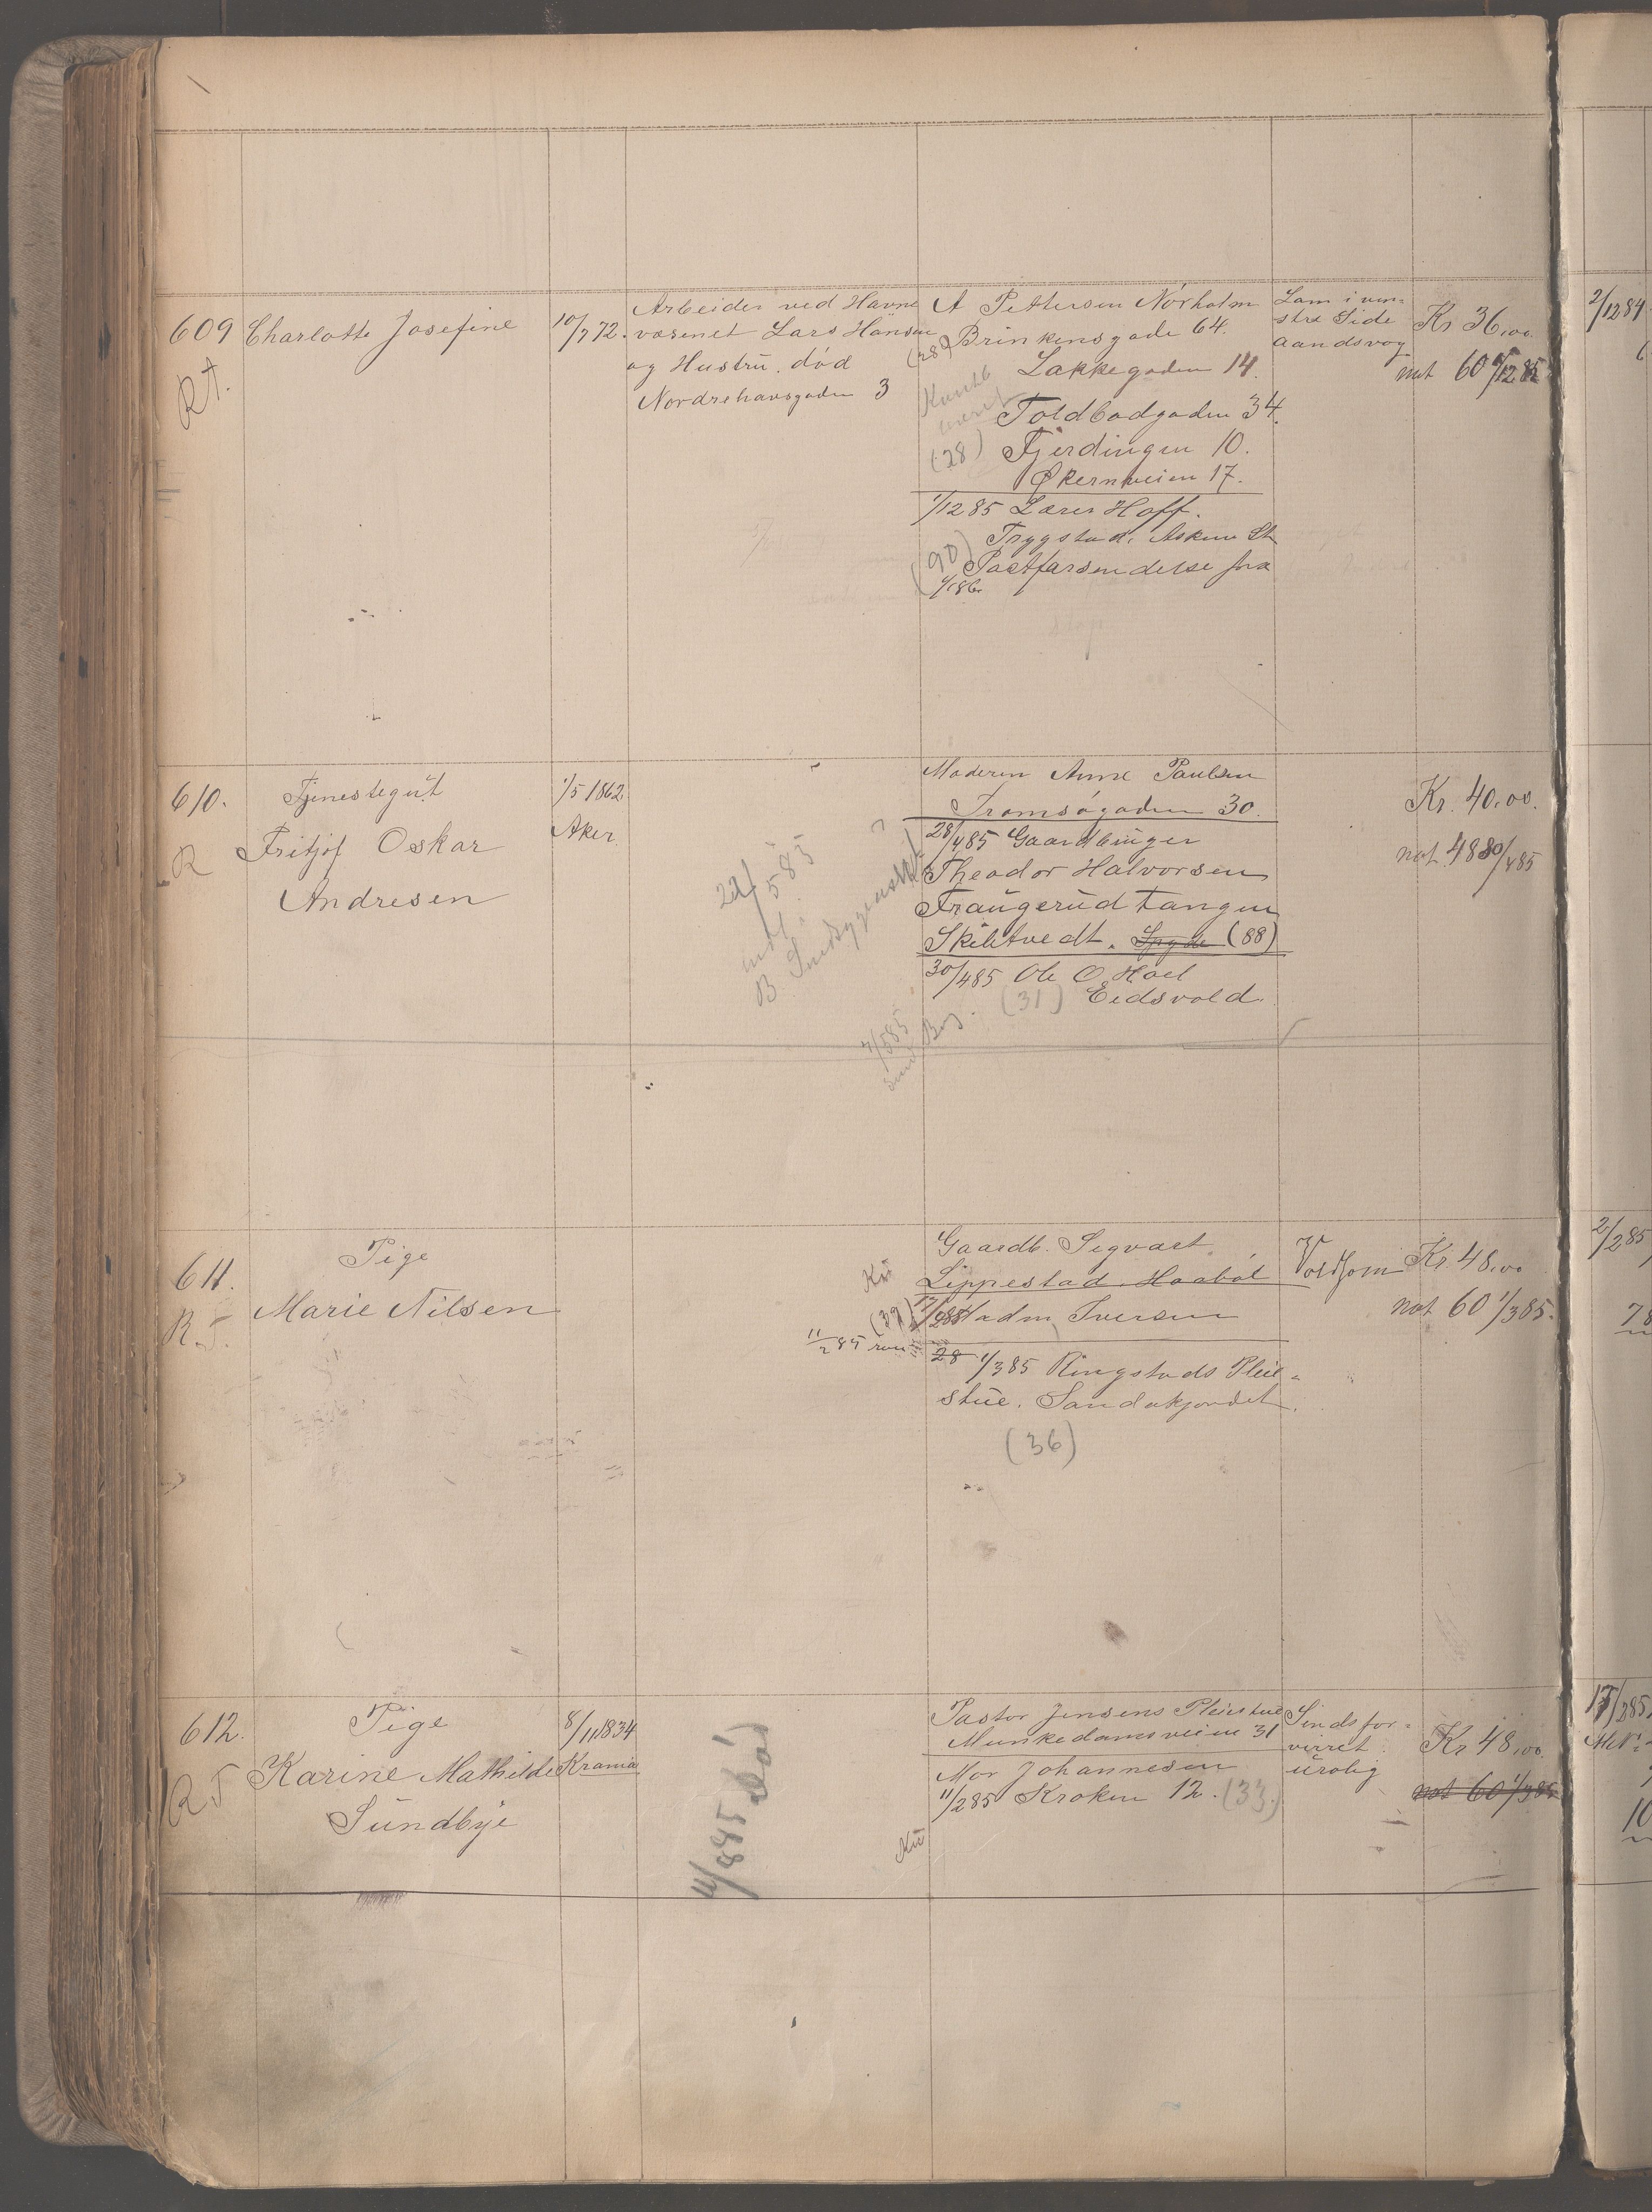 609 Charlotte Josefine 10/7 72.
R T.
Arbeider ved Havne
væsenet Lars Hansen
og Hustru. död
Nordrehavsgaden 3
A Pettersen Nörholm
(28) Brinkensgade 64.
Lakkegaden 14.
Toldbodgaden 34.
(28) Fjerdingen 10.
Økernveien 17.
1/12 85 Lærer Hoff.
Trygstad. Askim St
(90) Postforsendelse fra
1/1 86.
Lam i ven-
stre Side
aandsvag
Kr 36,00.
not 60 1/12 85
2/12 84
610. Tjenestegut
R Fritjof Oskar
Andresen
1/5 1862.
Aker.
22/5 85
indl.
7/5 85
Moderen Anne Paulsen
Tromsögaden 30.
28/4 85 Gaardbruger
Theodor Halvorsen
Fraugerud Tangen
Skibtvedt. Spyde (88)
30/4 85 Ole O. Hoel
(31) Eidsvold.
Kr. 40,00.
not 48 30/4 85
611. Pige
R. T. Marie Nilsen
Gaardb. Segvart
Lippestad. Haaböl
(39) Madm. Iversen
11/2 85
28 1/3 85 Ringstads Pleie-
stue. Sandakjordet.
(36)
Voldsom
Kr. 48,00
not 60 1/3 85.
2/2 85
78
612. Pige
R T Karine Mathilde
Sundbye
8/11 1834
Krania
död
Pastor Jensens Pleiestue
Munkedamsveien 31
Mor Johannesen
11/2 85 Kroken 12. (33.)
Sindsfor-
virret
urolig
Kr 48,00.
not 60 1/3 85
17/2 85
10